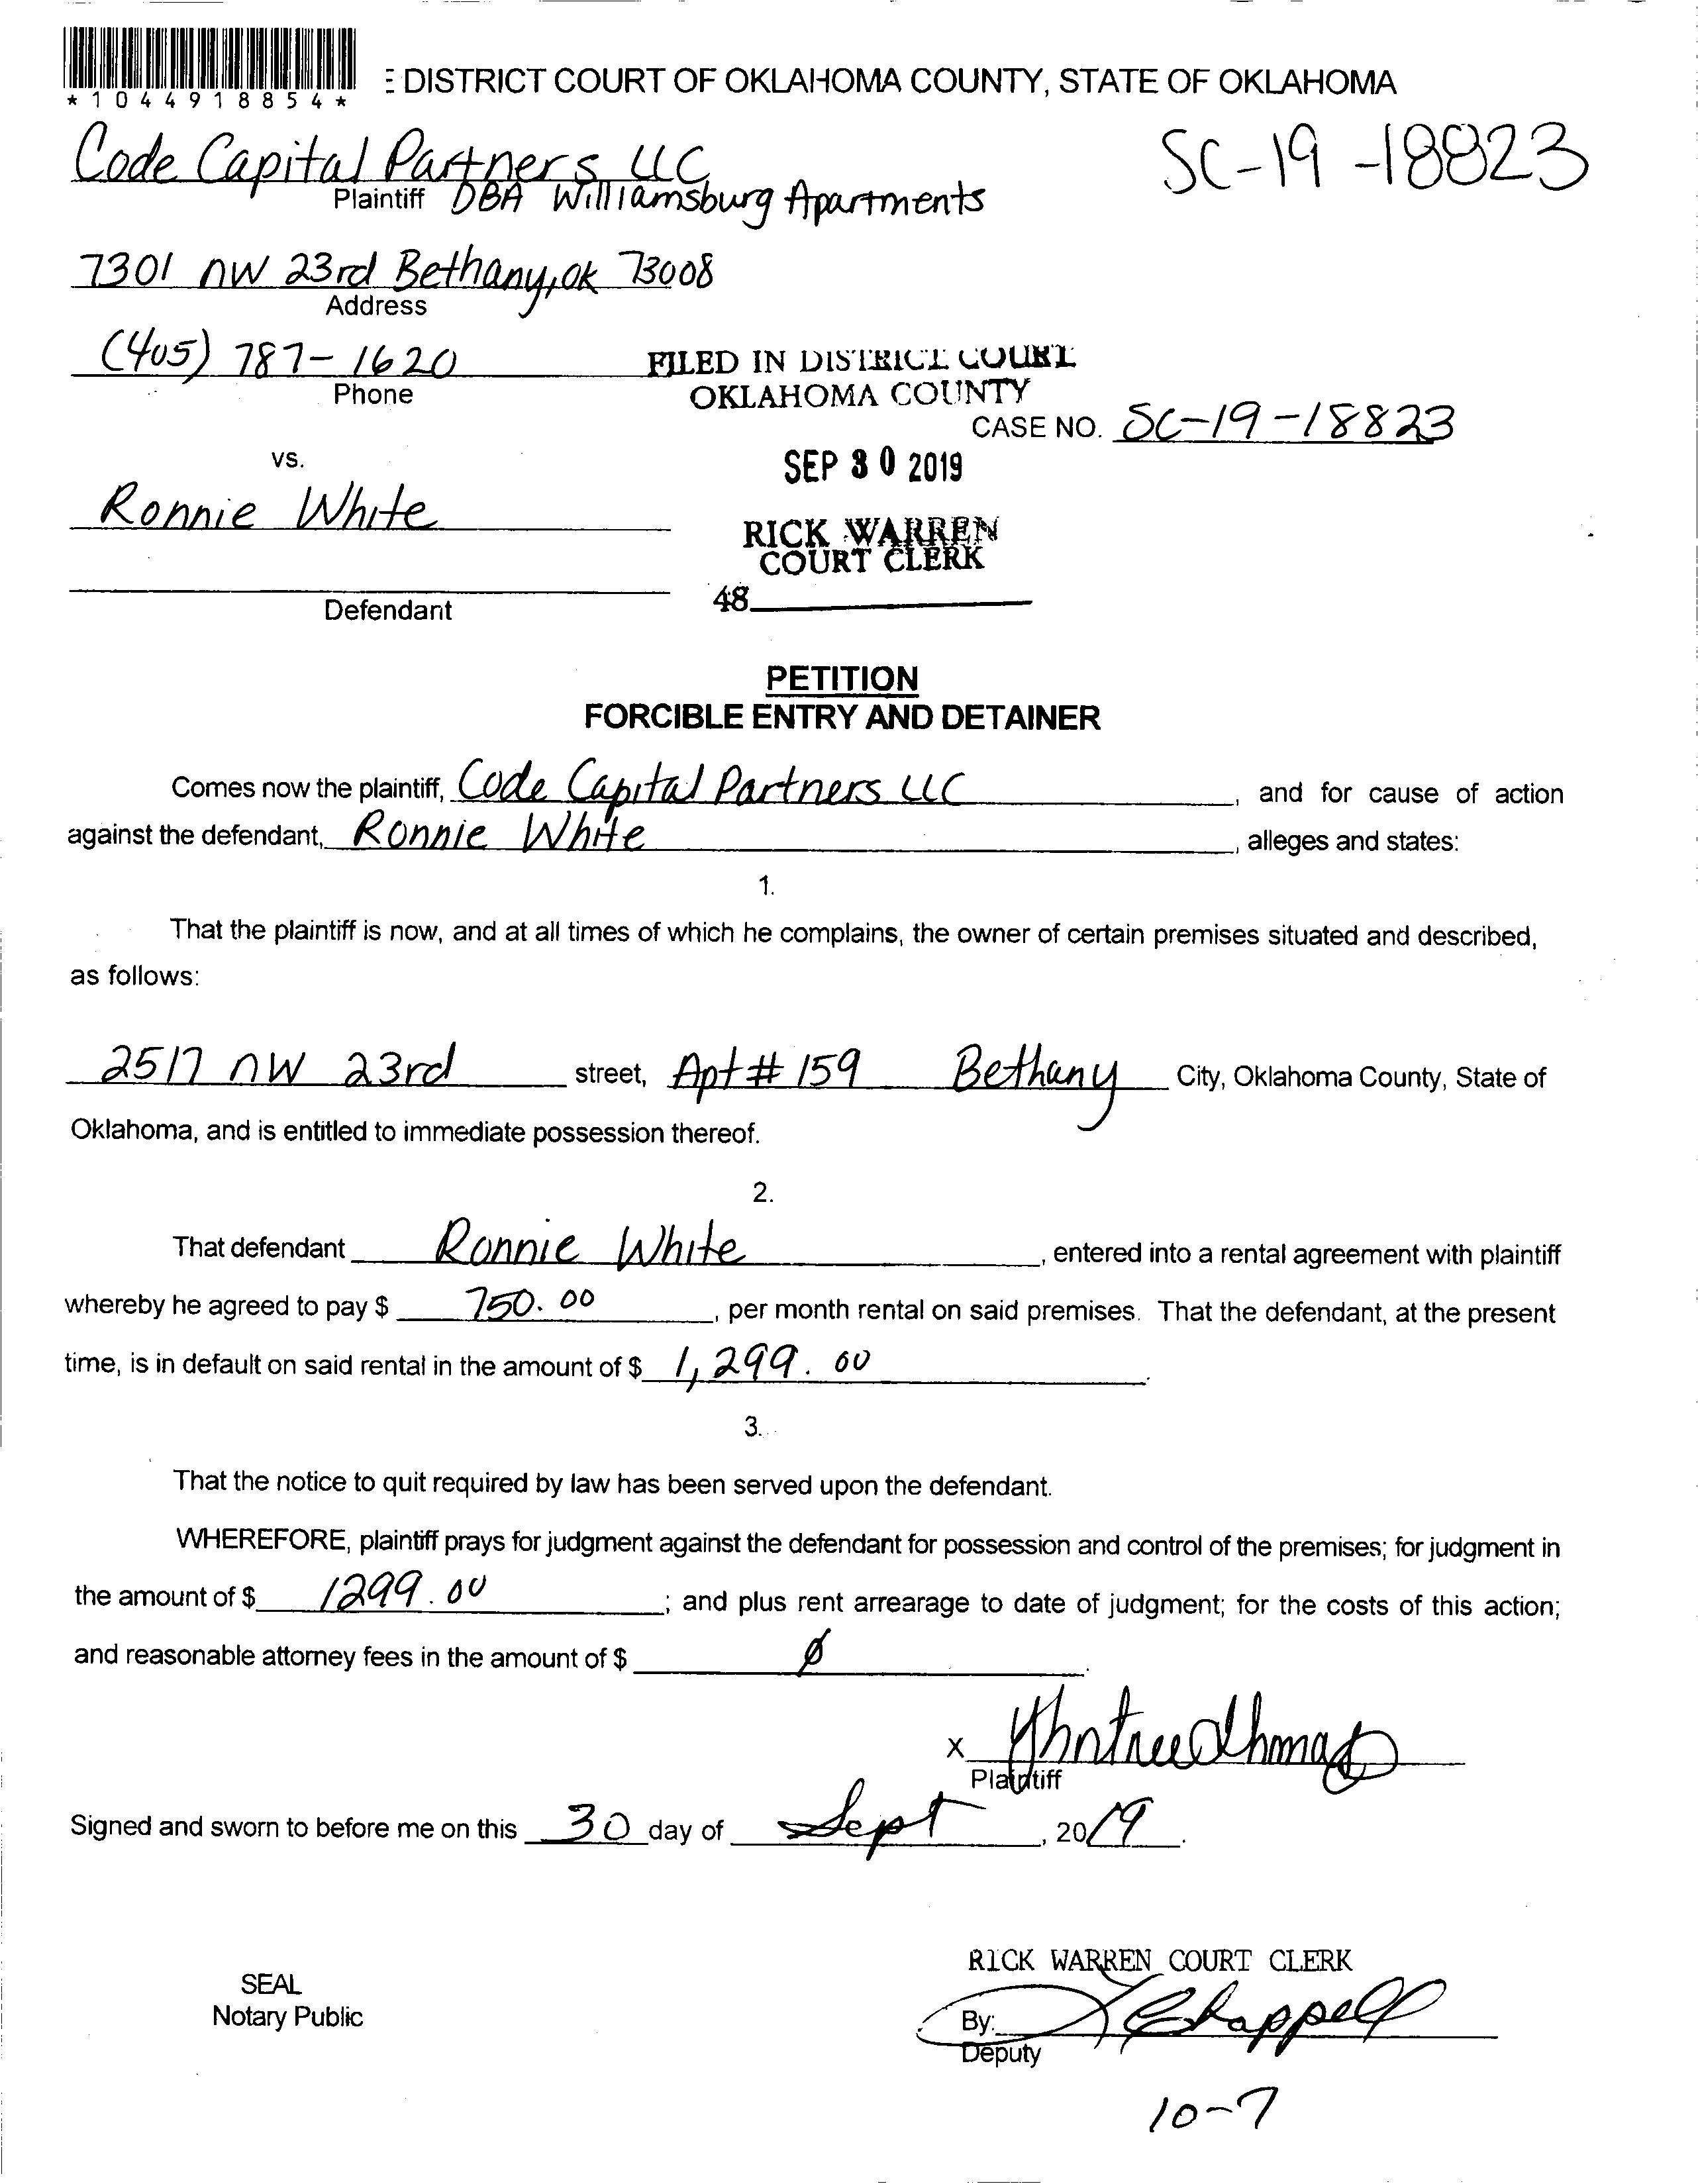 *1044918854*
E DISTRICT COURT OF OKLAHOMA COUNTY, STATE OF OKLAHOMA
Code Capital Partners LLC
SC-19-18823
Plaintiff DBA Williamsburg Apartments
7301 NW 23rd Bethany, OK 73008
Address
(405) 787-1620
Phone
FILED IN DISTRICT COURT
OKLAHOMA COUNTY
CASE NO. SC-19-18823
vs.
SEP 30 2019
Ronnie White
RICK WARREN
COURT CLERK
48
Defendant
PETITION
FORCIBLE ENTRY AND DETAINER
Comes now the plaintiff, Code Capital Partners LLC, and for cause of action
against the defendant, Ronnie White, alleges and states:
1.
That the plaintiff is now, and at all times of which he complains, the owner of certain premises situated and described,
as follows:
2517 NW 23rd street, Apt # 159 Bethany City, Oklahoma County, State of
Oklahoma, and is entitled to immediate possession thereof.
2.
That defendant Ronnie White, entered into a rental agreement with plaintiff
whereby he agreed to pay $ 750.00, per month rental on said premises. That the defendant, at the present
time, is in default on said rental in the amount of $ 1,299.00.
3.
That the notice to quit required by law has been served upon the defendant.
WHEREFORE, plaintiff prays for judgment against the defendant for possession and control of the premises; for judgment in
the amount of $ 1299.00; and plus rent arrearage to date of judgment; for the costs of this action;
and reasonable attorney fees in the amount of $ Ø.
X
Plaintiff
Signed and sworn to before me on this 30 day of Sept, 2019.
RICK WARREN COURT CLERK
SEAL
Notary Public
By: Chappell
Deputy
10-7